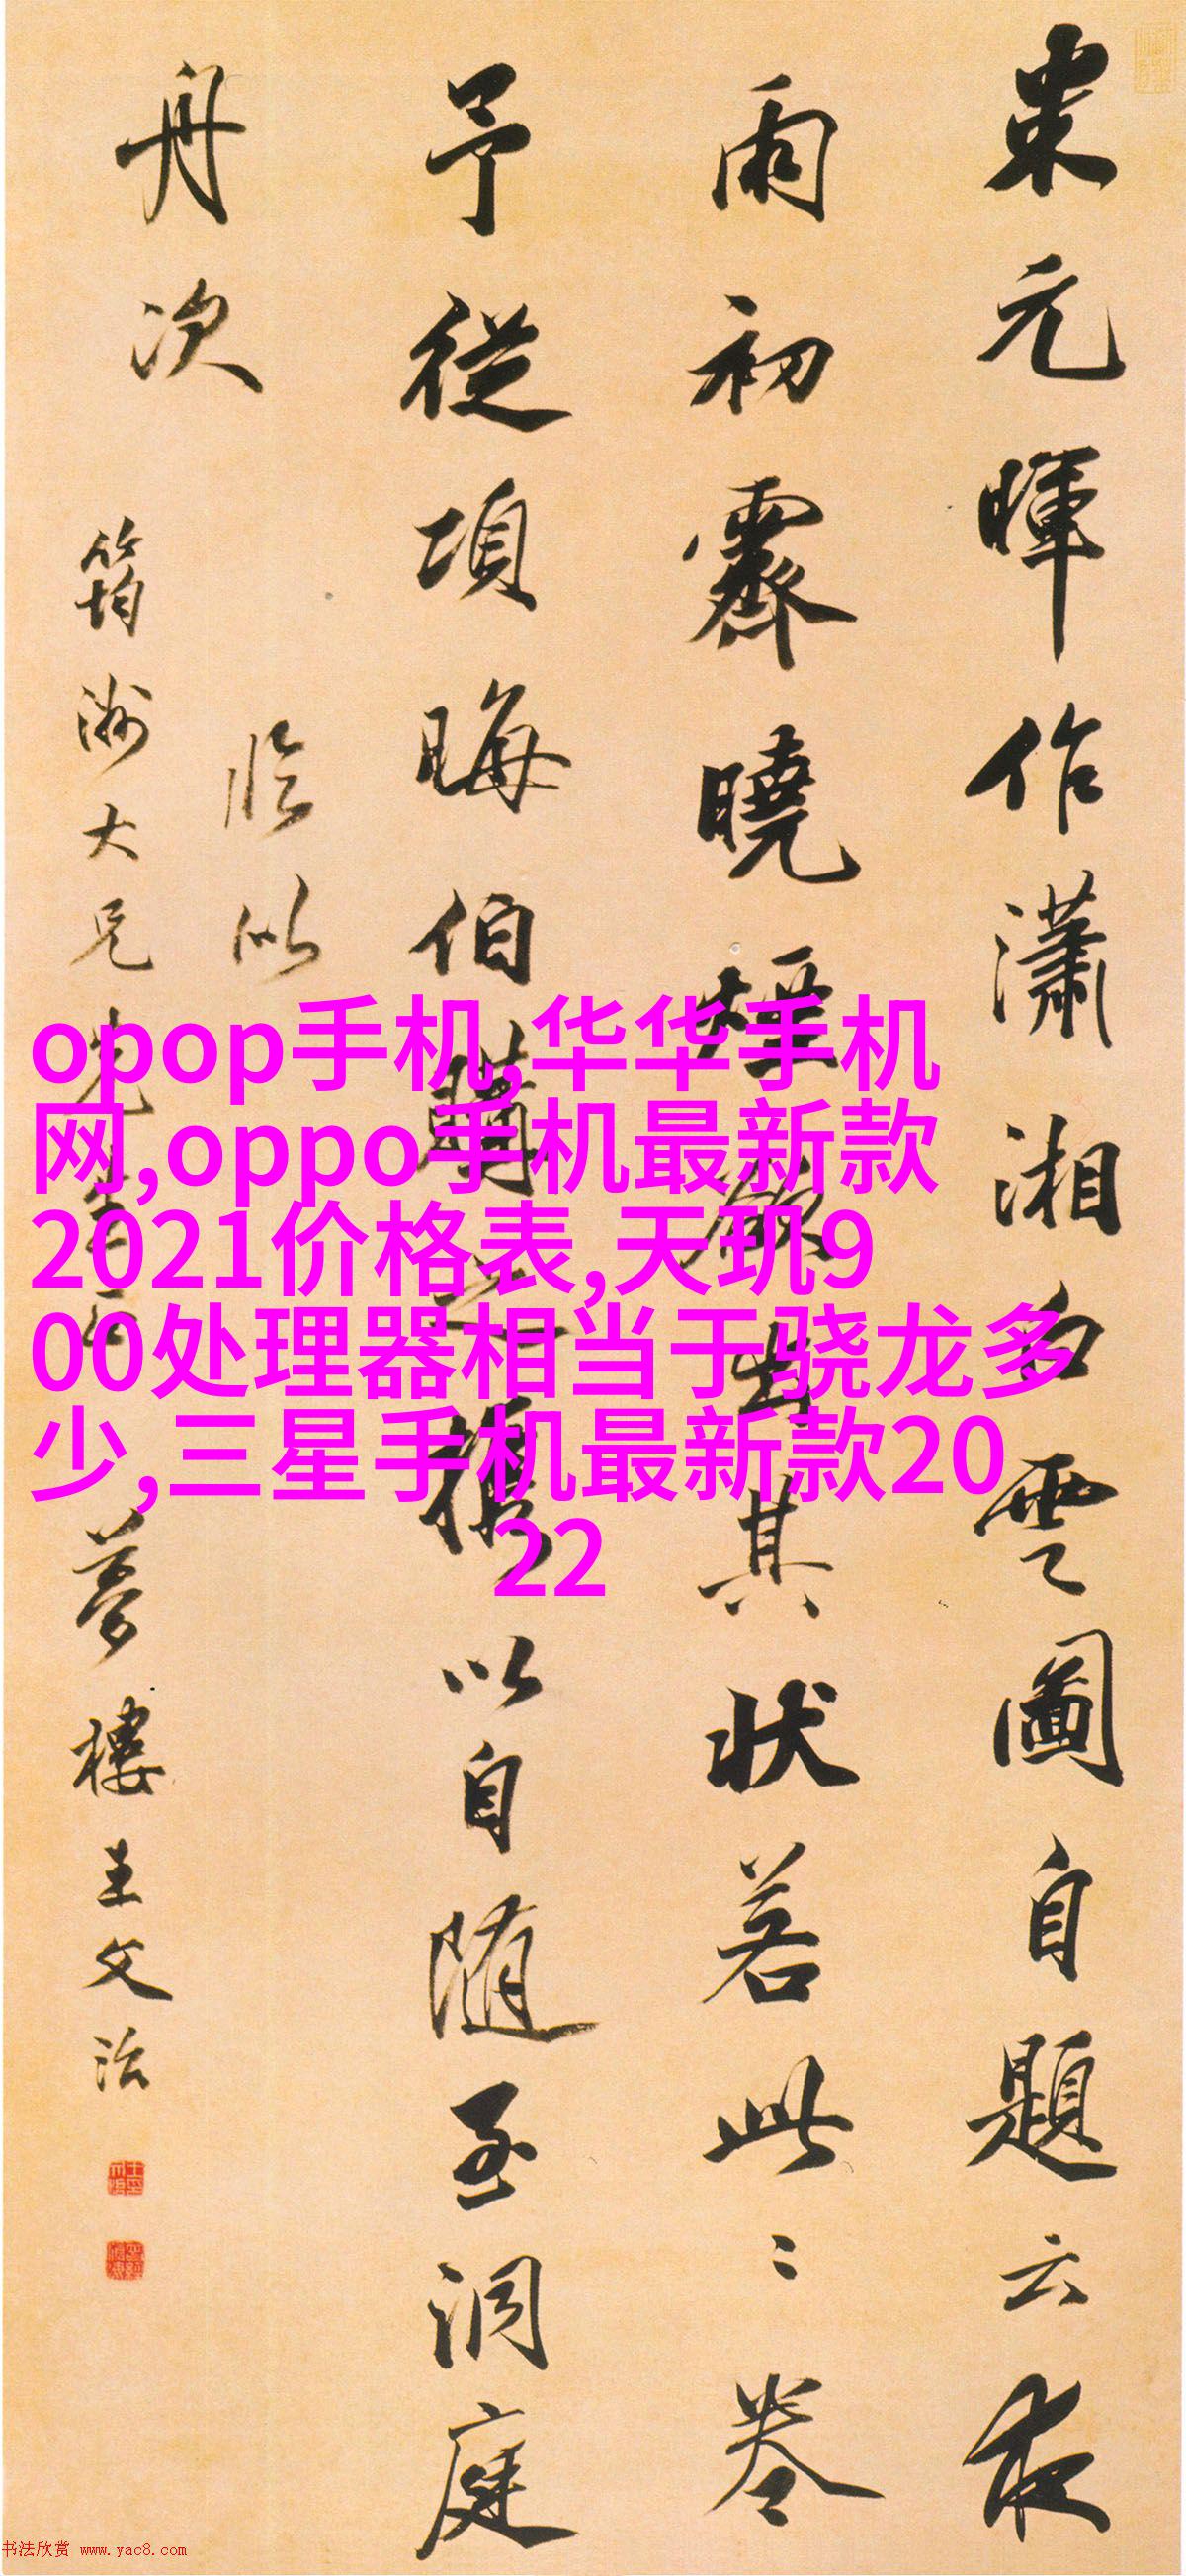 米元暉作瀟湘白雲圖自題云夜
雨初霽曉煙欲出其狀若此此卷
予從項晦伯購之攜以自随至洞庭
舟次
臨似
筠洲大兄先生正
夢樓王文治
opop手机,华华手机
网,oppo手机最新款
2021价格表,天玑9
00处理器相当于骁龙多
少,三星手机最新款20
22
书法欣赏 www.yac8.com